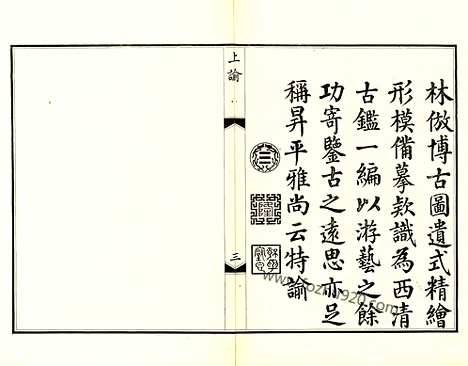 林倣博古圖遺式精繪
形模備摹款識為西清
古鑑一編以游藝之餘
功寄鑒古之遠思亦足
稱昇平雅尚云特諭
上諭
三